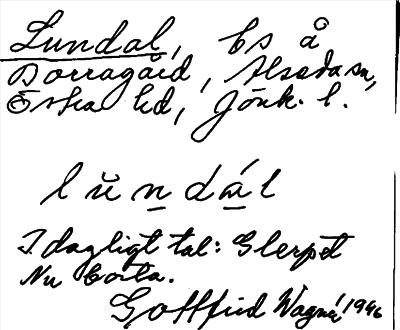 Lundal, ls å
Norragård, Alseda sn,
Östra hd, Jönk. l.
lŭndál
I dagligt tal: Glerpet
Nu borta.
Gottfrid Wagnér 1946